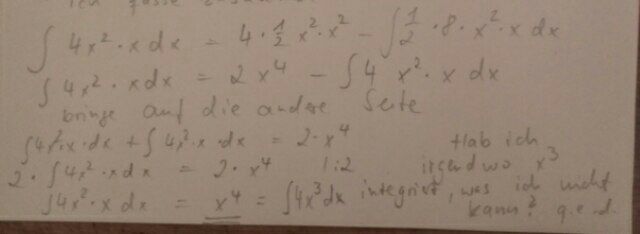 ich fasse zusammen
∫ 4x² · x dx = 4 · ½ x² · x² − ∫ ½ · 8 · x² · x dx
∫ 4x² · x dx = 2 x⁴ − ∫ 4 x² · x dx
bringe auf die andere Seite
∫ 4x² · x · dx + ∫ 4x² · x · dx = 2 · x⁴ Hab ich
2 · ∫ 4x² · x dx = 2 · x⁴ | : 2 irgendwo x³
∫ 4x² · x dx = x⁴ = ∫ 4x³ dx integriert, was ich nicht
kann? q.e.d.